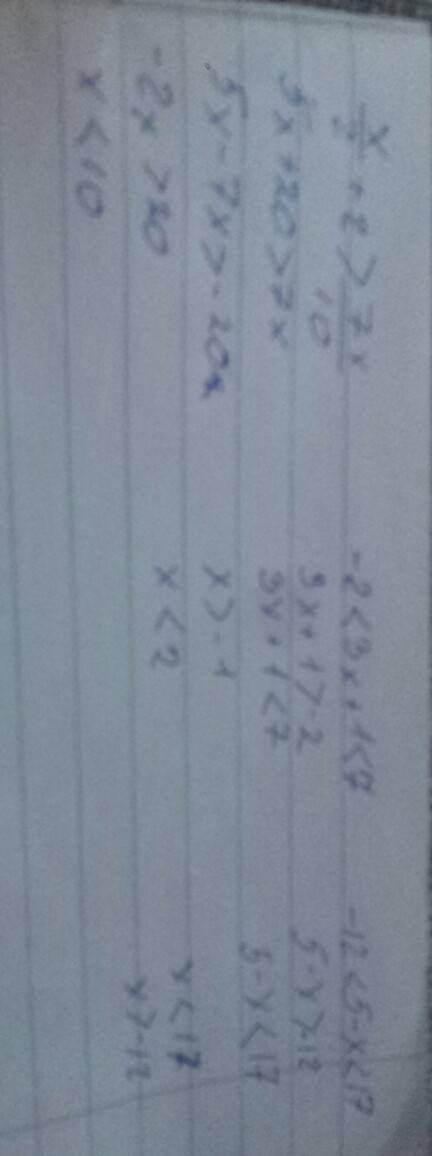 x/2 + 2 > 7x/10
5x + 20 > 7x
5x - 7x > - 20
-2x > 20
x < 10
-2 < 3x + 1 < 7
3x + 1 > -2
3x + 1 < 7
x > -1
x < 2
-12 < 5 - x < 17
5 - x > -12
5 - x < 17
x < 17
x > -12